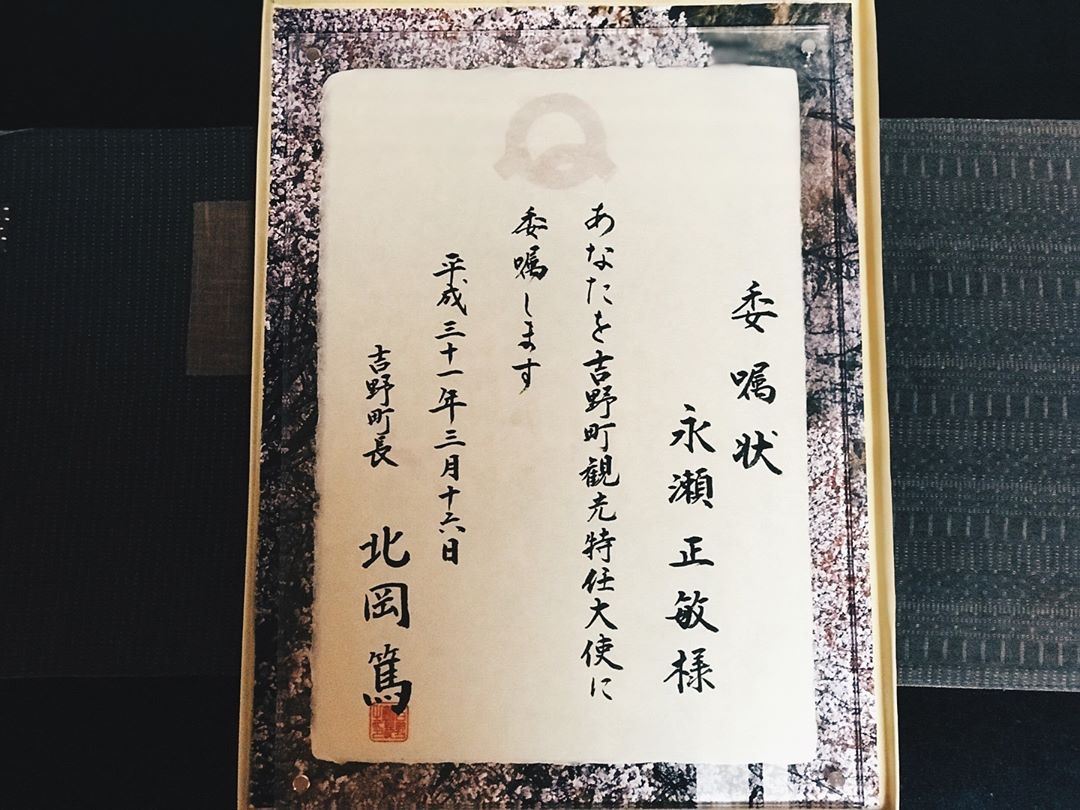 委嘱状
永瀬正敏様
あなたを吉野町観光特任大使に
委嘱します
平成三十一年三月十六日
吉野町長 北岡篤